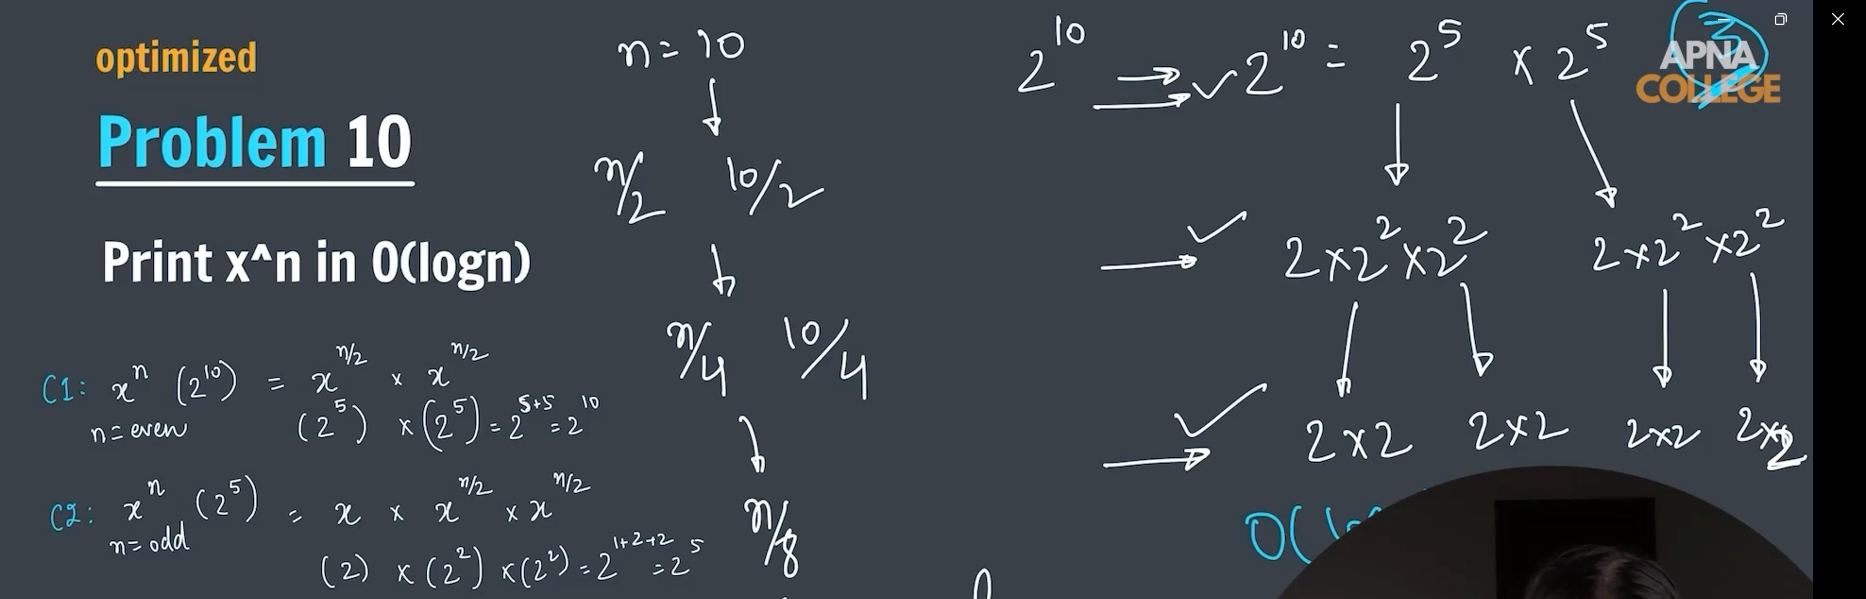 optimized
Problem 10
Print x^n in O(logn)
C1: x^n (2^10) = x^n/2 × x^n/2
n=even (2^5) × (2^5) = 2^5+5 = 2^10
C2: x^n (2^5) = x × x^n/2 × x^n/2
n=odd (2) × (2^2) × (2^2) = 2^1+2+2 = 2^5
n=10
n/2 10/2
n/4 10/4
n/8
2^10 2^10 = 2^5 × 2^5
2×2^2×2^2 2×2^2×2^2
2×2 2×2 2×2 2×2
O(lo
3
APNA
COLLEGE